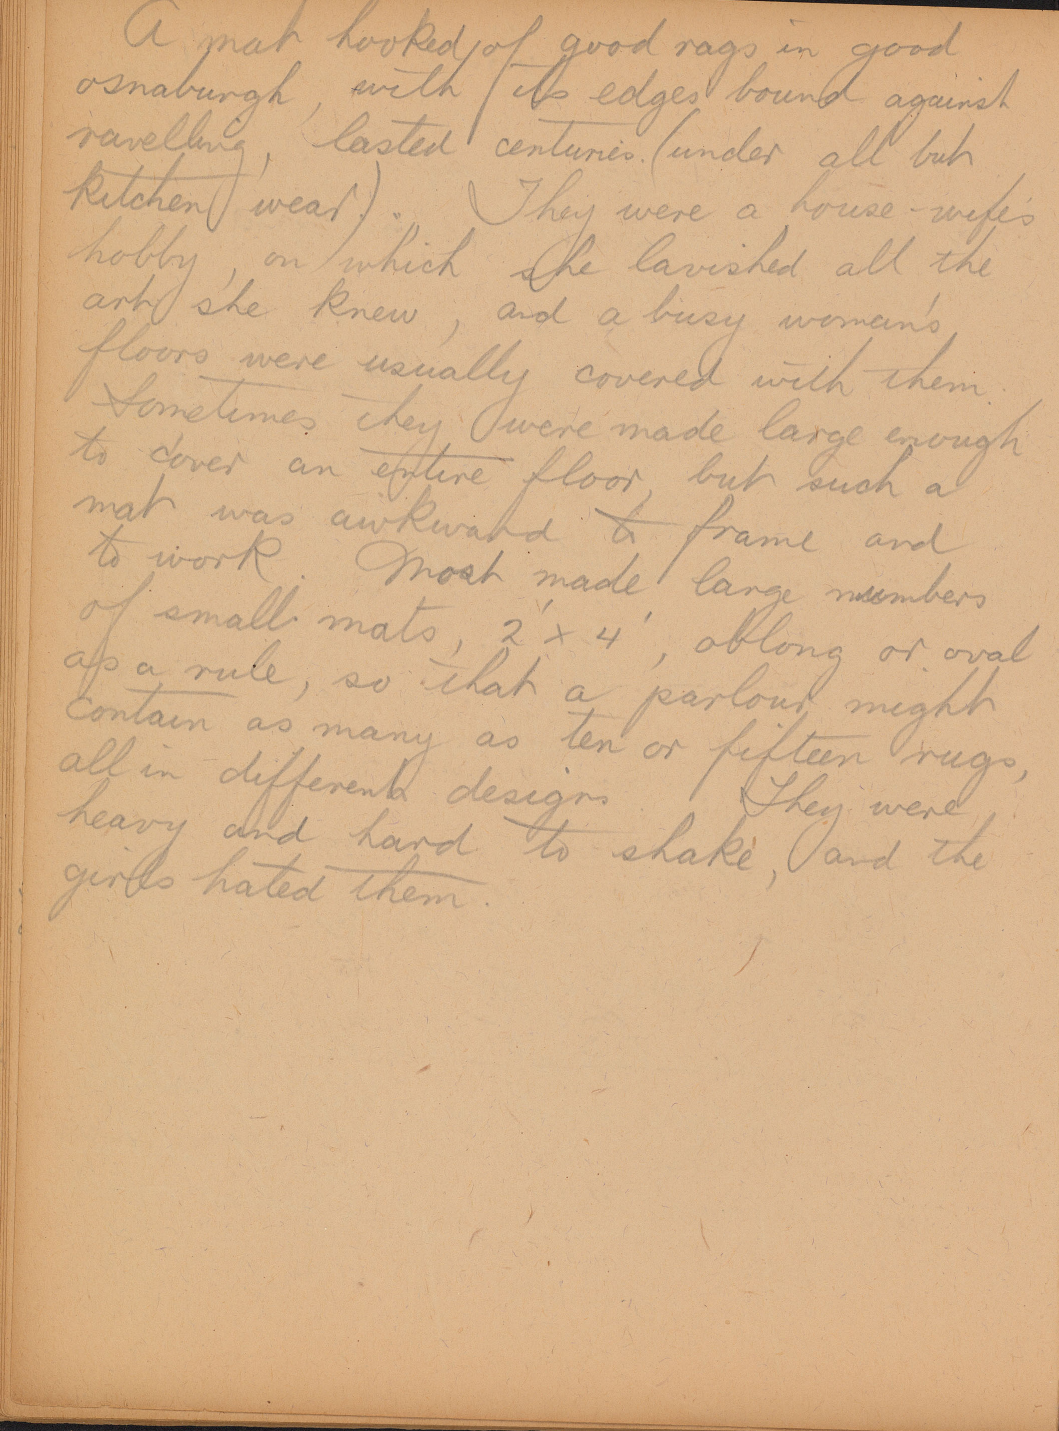 A mat hooked of good rags in good
osnaburgh, with its edges bound against
ravelling, lasted centuries. (under all but
kitchen wear). They were a house-wife's
hobby, on which she lavished all the
art she knew, and a busy woman's
floors were usually covered with them.
Sometimes they were made large enough
to cover an entire floor, but such a
mat was awkward to frame and
to work. Most made large numbers
of small mats, 2' x 4', oblong or oval
as a rule, so that a parlour might
contain as many as ten or fifteen rugs,
all in different designs They were
heavy and hard to shake, and the
girls hated them.